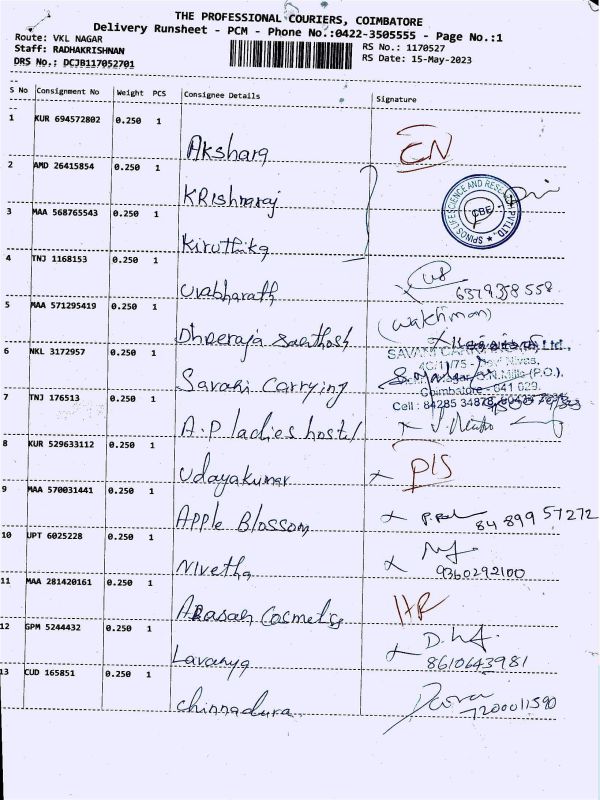 THE PROFESSIONAL COURIERS, COIMBATORE
Delivery Runsheet - PCM - Phone No.:0422-3505555 - Page No.:1
Route: VKL NAGAR
Staff: RADHAKRISHNAN
DRS No.: DCJB117052701
RS No.: 1170527
RS Date: 15-May-2023
S No Consignment No Weight PCS Consignee Details Signature
1 KUR 694572802 0.250 1 Akshara EN
2 AMD 26415854 0.250 1 KRishnaraj
SPINOS LIFE SCIENCE AND RESEARCH PVT LTD. CBE
3 MAA 568765543 0.250 1 Kiruthika
4 TNJ 1168153 0.250 1 Uvabharath 6379358558
(watchman)
5 MAA 571295419 0.250 1 Dheeraja Santhosh
6 NKL 3172957 0.250 1 Savani Carrying
SAVANI CARRYING Ltd.,
4C/11/75 - Nivas,
Nagar, S.N.Mills (P.O.),
Coimbatore - 641 029.
Cell : 84285 34878
7 TNJ 176513 0.250 1 A.P ladies hostel
8 KUR 529633112 0.250 1 Udayakumar x DIS
9 MAA 570031441 0.250 1 Apple Blossom 84 899 57272
10 UPT 6025228 0.250 1 Nivetha 9360292100
11 MAA 281420161 0.250 1 Arasan Cosmetics
12 GPM 5244432 0.250 1 Lavanya 8610643981
13 CUD 165851 0.250 1 Chinnadurai 7200011590